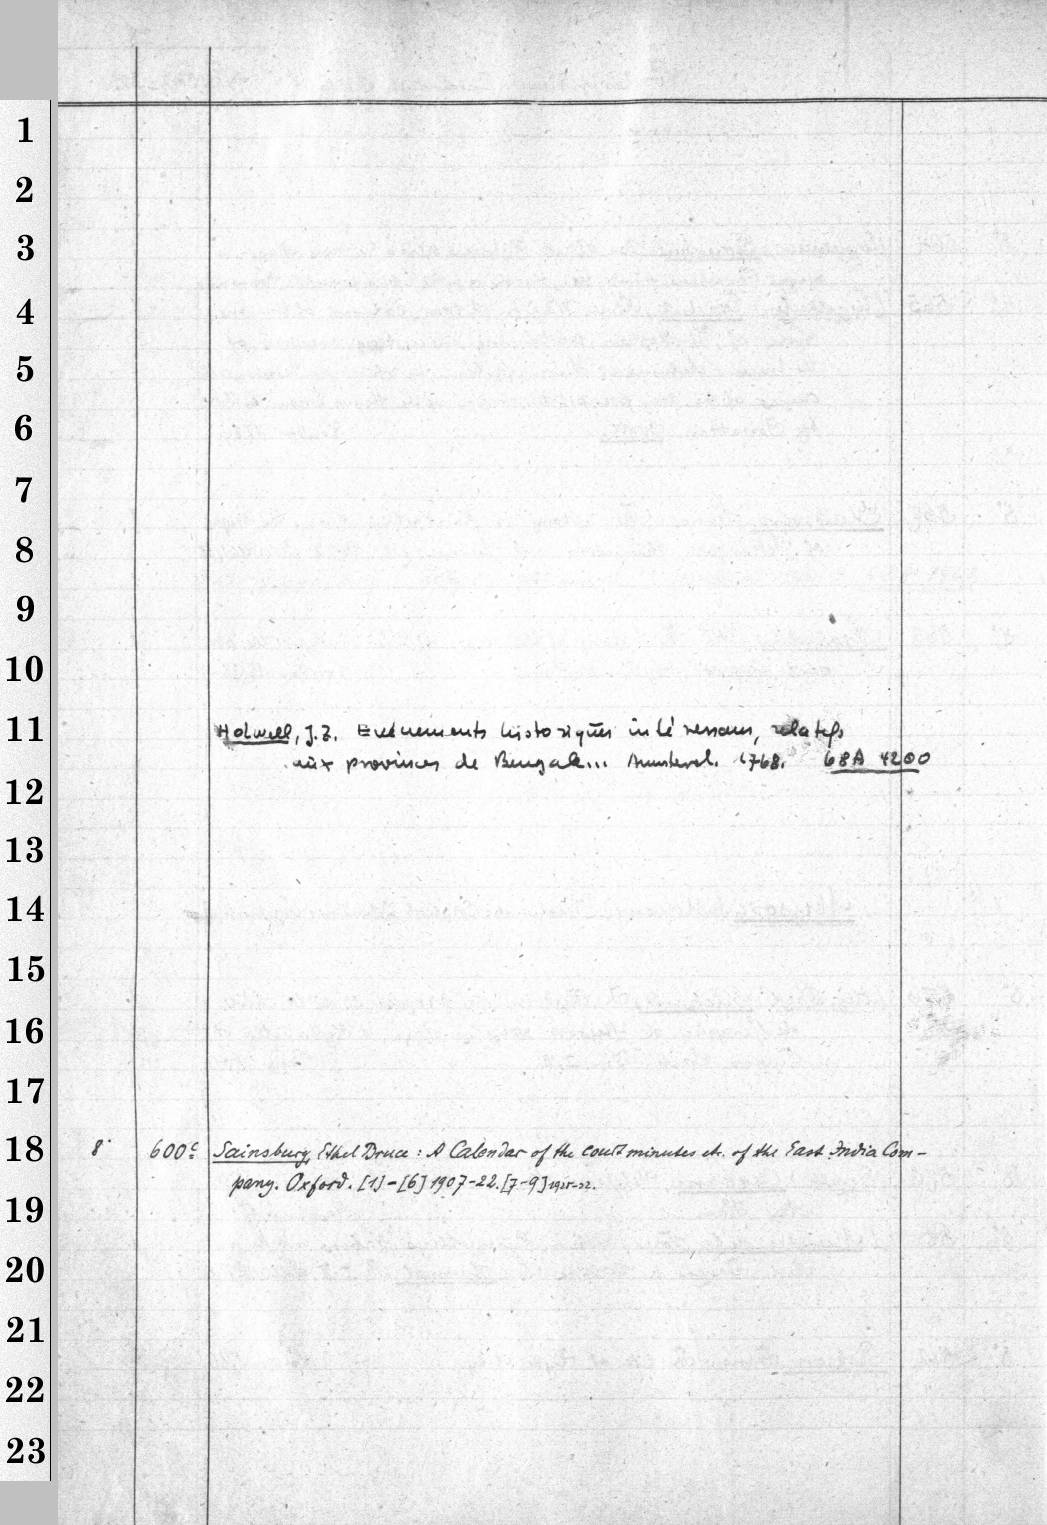 1
2
3
4
5
6
7
8
9
10
11
Holwell, J. Z. Evénements historiques intéressans, relatifs
aux provinces de Bengale... Amsterd. 1768. 68A 4200
12
13
14
15
16
17
18
8° 600c Sainsbury, Ethel Bruce: A Calendar of the court minutes etc. of the East India Com-
pany. Oxford. [1]-[6] 1907-22. [7-9] 1925-32.
19
20
21
22
23